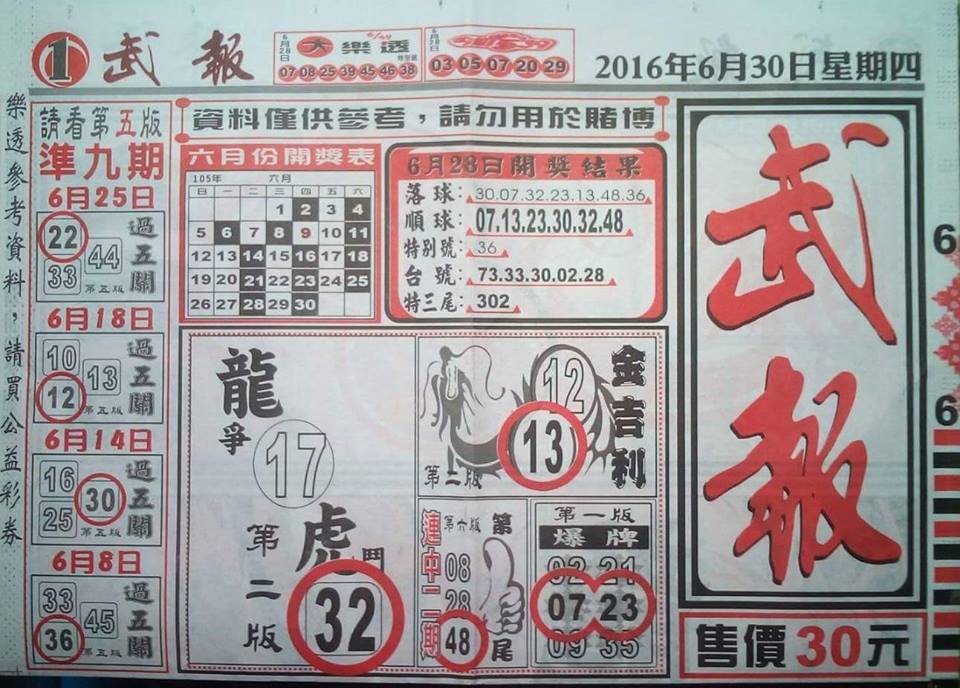 1 武報
6月28日 大樂透 6/49 特別號
07 08 25 39 45 46 38
6月28日
03 05 07 20 29
2016年6月30日星期四
樂透參考資料,請買公益彩券
請看第五版
準九期
6月25日
22 44 33
過五關
第五版
6月18日
10 13 12
過五關
第五版
6月14日
16 30 25
過五關
第五版
6月8日
33 45 36
過五關
第五版
資料僅供參考,請勿用於賭博
六月份開獎表
105年 六月
日 一 二 三 四 五 六
1 2 3 4
5 6 7 8 9 10 11
12 13 14 15 16 17 18
19 20 21 22 23 24 25
26 27 28 29 30
6月28日開獎結果
落球:30.07.32.23.13.48.36
順球:07.13.23.30.32.48
特別號:36
台號:73.33.30.02.28
特三尾:302
龍爭
17
虎鬥
第二版
32
12
13
金吉利
第二版
連中二期
第六版
08
28
48
第
尾
第一版
爆牌
02 21
07 23
09 35
武報
售價30元
6
6